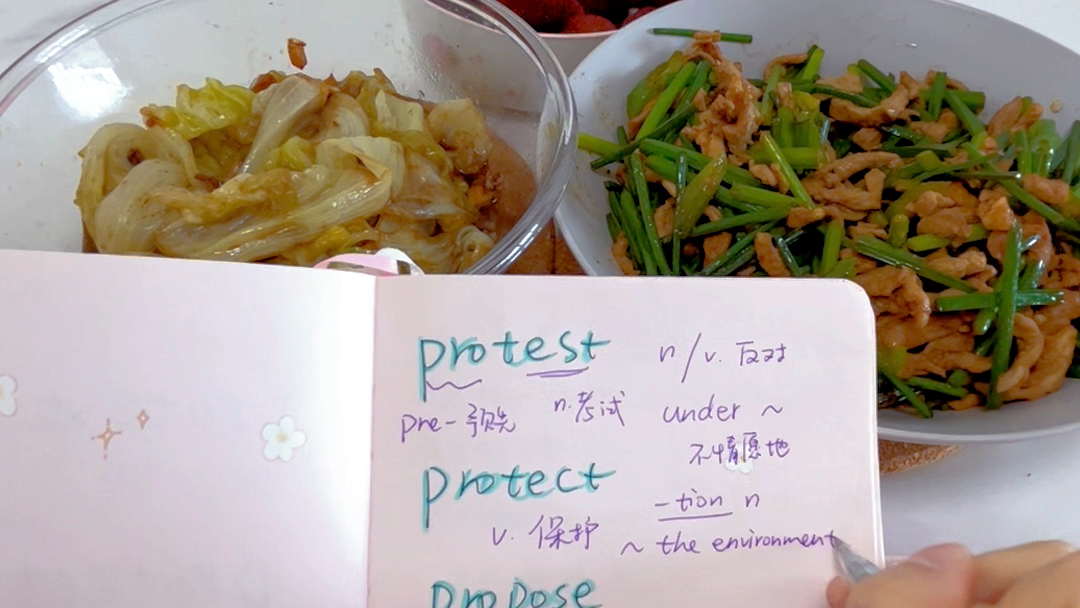 protest n/v. 反对
pre-预先 n.考试 under ~
不情愿地
protect -tion n
v. 保护 ~ the environment
propose